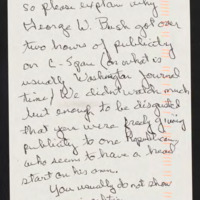 so please explain why
George W. Bush got over
two hours of publicity
on C-Span (on what is
usually Washington Journal
time) We didn't watch much,
but enough to be disgusted
that you were freely giving
publicity to one Republican
who seems to have a head
start on his own.
You usually do not show